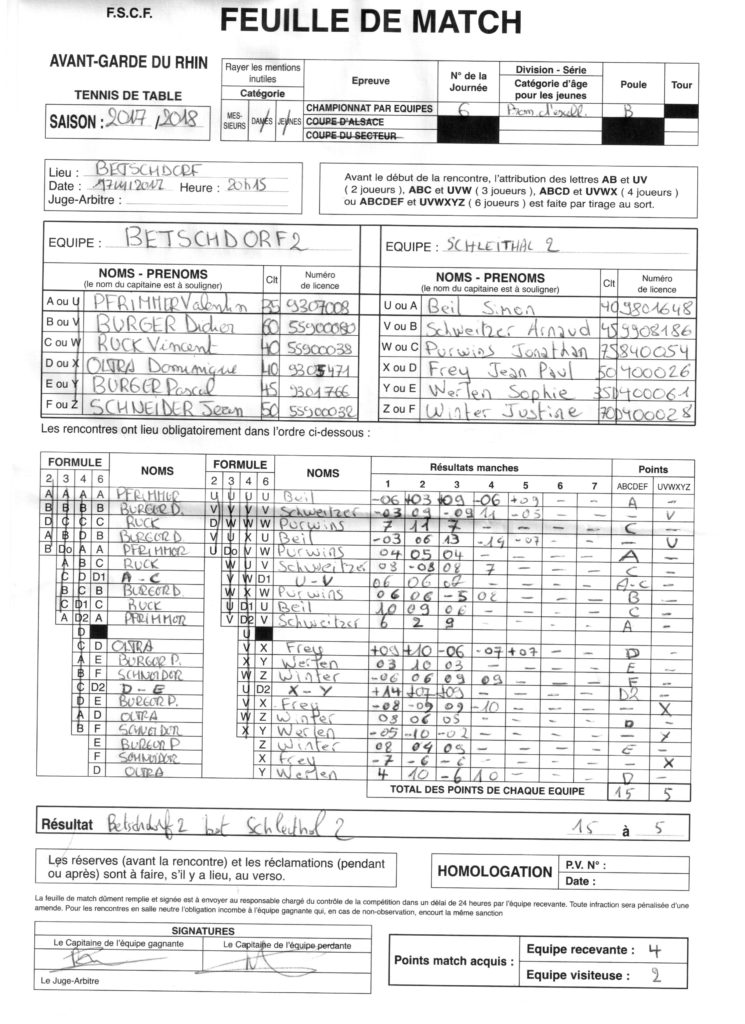 F.S.C.F.
FEUILLE DE MATCH
AVANT-GARDE DU RHIN
TENNIS DE TABLE
SAISON : 2017 / 2018
Rayer les mentions inutiles
Catégorie
MES-SIEURS DAMES JEUNES
Epreuve
N° de la Journée
Division - Série
Catégorie d'âge pour les jeunes
Poule
Tour
CHAMPIONNAT PAR EQUIPES 6 Prom d'excell. B
COUPE D'ALSACE
COUPE DU SECTEUR
Lieu : BETSCHDORF
Date : Heure : 20h15
Juge-Arbitre :
Avant le début de la rencontre, l'attribution des lettres AB et UV
( 2 joueurs ), ABC et UVW ( 3 joueurs ), ABCD et UVWX ( 4 joueurs )
ou ABCDEF et UVWXYZ ( 6 joueurs ) est faite par tirage au sort.
EQUIPE : BETSCHDORF 2
EQUIPE : SCHLEITHAL 2
NOMS - PRENOMS (le nom du capitaine est à souligner) Clt Numéro de licence
NOMS - PRENOMS (le nom du capitaine est à souligner) Clt Numéro de licence
A ou U PFRIMMER Valentin 35 9307008
U ou A Beil Simon 40 9801648
B ou V BURGER Didier 60 55900080
V ou B Schweitzer Arnaud 45 9908186
C ou W RUCK Vincent 40 55900038
W ou C Purwins Jonathan 75 840054
D ou X OLTRA Dominique 40 9305471
X ou D Frey Jean Paul 50 400026
E ou Y BURGER Pascal 45 9301766
Y ou E Werlen Sophie 35D 400061
F ou Z SCHNEIDER Jean 50 55900032
Z ou F Winter Justine 70D 400028
Les rencontres ont lieu obligatoirement dans l'ordre ci-dessous :
FORMULE NOMS FORMULE NOMS Résultats manches Points
2 3 4 6 2 3 4 6 1 2 3 4 5 6 7 ABCDEF UVWXYZ
A A A A PFRIMMER U U U U Beil -06 +03 +09 -06 +09 – – A –
B B B B BURGER D. V V V V Schweitzer -03 09 -09 11 -05 – – – V
D C C C RUCK D W W W Purwins 7 11 7 – – – – C –
A B D B BURGER D U V X U Beil -03 06 13 -19 -07 – – – U
B Do A A PFRIMMER U Do V W Purwins 04 05 04 – – – – A –
A B C RUCK W U V Schweitzer 03 -03 08 7 – – – C –
C D D1 A - C V W D1 U - V 06 06 07 – – – – A-C –
B C B BURGER D. V X W Purwins 06 06 -5 08 – – – B –
C D1 C RUCK U D1 U Beil 10 09 06 – – – – C –
A D2 A PFRIMMER V D2 V Schweitzer 6 2 9 – – – – A –
D U
C D OLTRA V X Frey +09 +10 -06 -07 +07 – – D –
A E BURGER P. X Y Werlen 03 10 03 – – – – E –
B F SCHNEIDER W Z Winter -06 06 09 09 – – – F –
C D2 D - E U D2 X - Y +14 +07 +09 – – – – D2 –
D E BURGER P. V X Frey -08 -09 09 -10 – – – – X
A D OLTRA W Z Winter 03 06 05 – – – – D –
B F SCHNEIDER X Y Werlen -05 -10 -02 – – – – – Y
E BURGER P Z Winter 08 04 09 – – – – E –
F SCHNEIDER X Frey -7 -6 -6 – – – – – X
D OLTRA Y Werlen 4 10 -6 10 – – – D –
TOTAL DES POINTS DE CHAQUE EQUIPE 15 5
Résultat Betschdorf 2 bat Schleithal 2 15 à 5
Les réserves (avant la rencontre) et les réclamations (pendant
ou après) sont à faire, s'il y a lieu, au verso.
HOMOLOGATION
P.V. N° :
Date :
La feuille de match dûment remplie et signée est à envoyer au responsable chargé du contrôle de la compétition dans un délai de 24 heures par l'équipe recevante. Toute infraction sera pénalisée d'une
amende. Pour les rencontres en salle neutre l'obligation incombe à l'équipe gagnante qui, en cas de non-observation, encourt la même sanction
SIGNATURES
Le Capitaine de l'équipe gagnante
Le Capitaine de l'équipe perdante
Le Juge-Arbitre
Points match acquis :
Equipe recevante : 4
Equipe visiteuse : 2